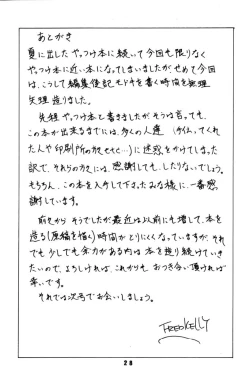 あとがき
夏に出した やっつけ本に続いて今回も限りなく
やっつけ本に近い本になってしまいましたが、せめて今回
は、こうして編集後記モドキを書く時間を無理
矢理造りました。
先程やっつけ本と書きましたがそうは言っても、
この本が出来るまでには、多くの人達
たんや印刷所の方々
訳で、それらの方々には、感謝しても、したりないでしょう。
もちろん、この本を入手して下さったみな様に、一番感
謝しています。
前々からそうでしたが最近は以前にも増して、本を
造る(原稿を描く)時間がとりにくくなっていますが、それ
でも少しでも余力がある内は本を造り続けていき
たいので、よろしければ、これからも おつき合い頂ければ
幸いです。
それでは次号でお会いしましょう。
FREDKELLY
28